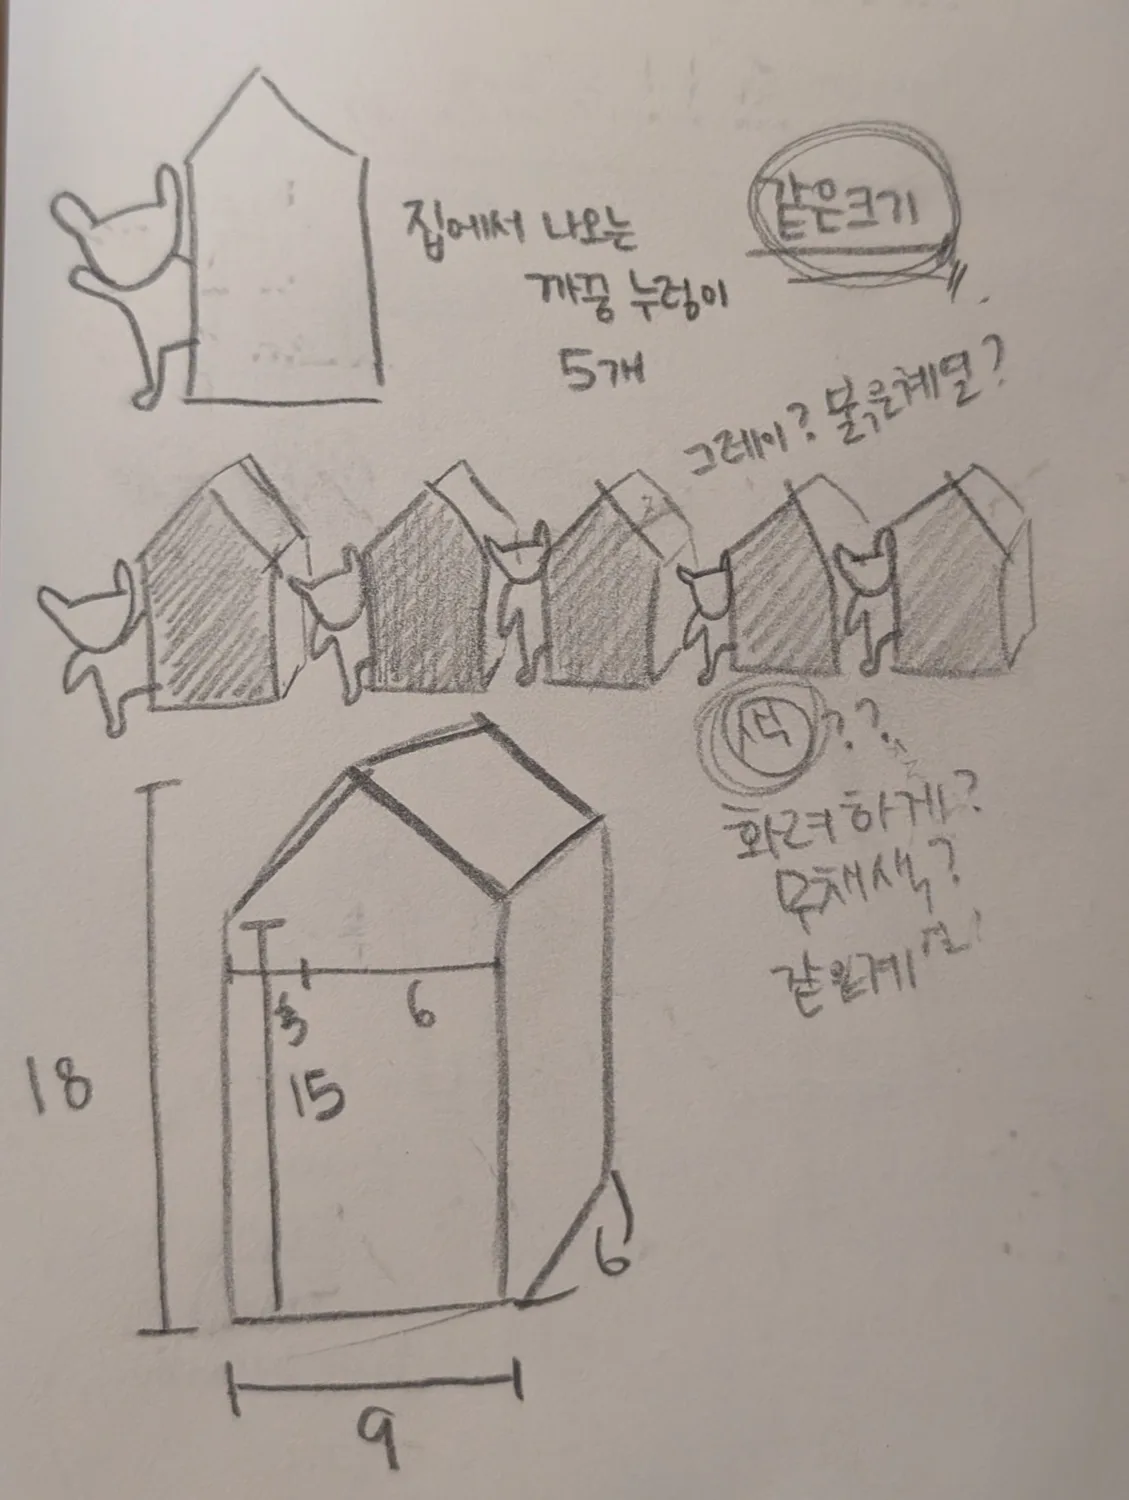 집에서 나오는
까꿍 누렁이
5개
같은크기
그레이? 붉은계열?
색??
화려하게?
무채색?
같은계열!
18
3
6
15
6
9